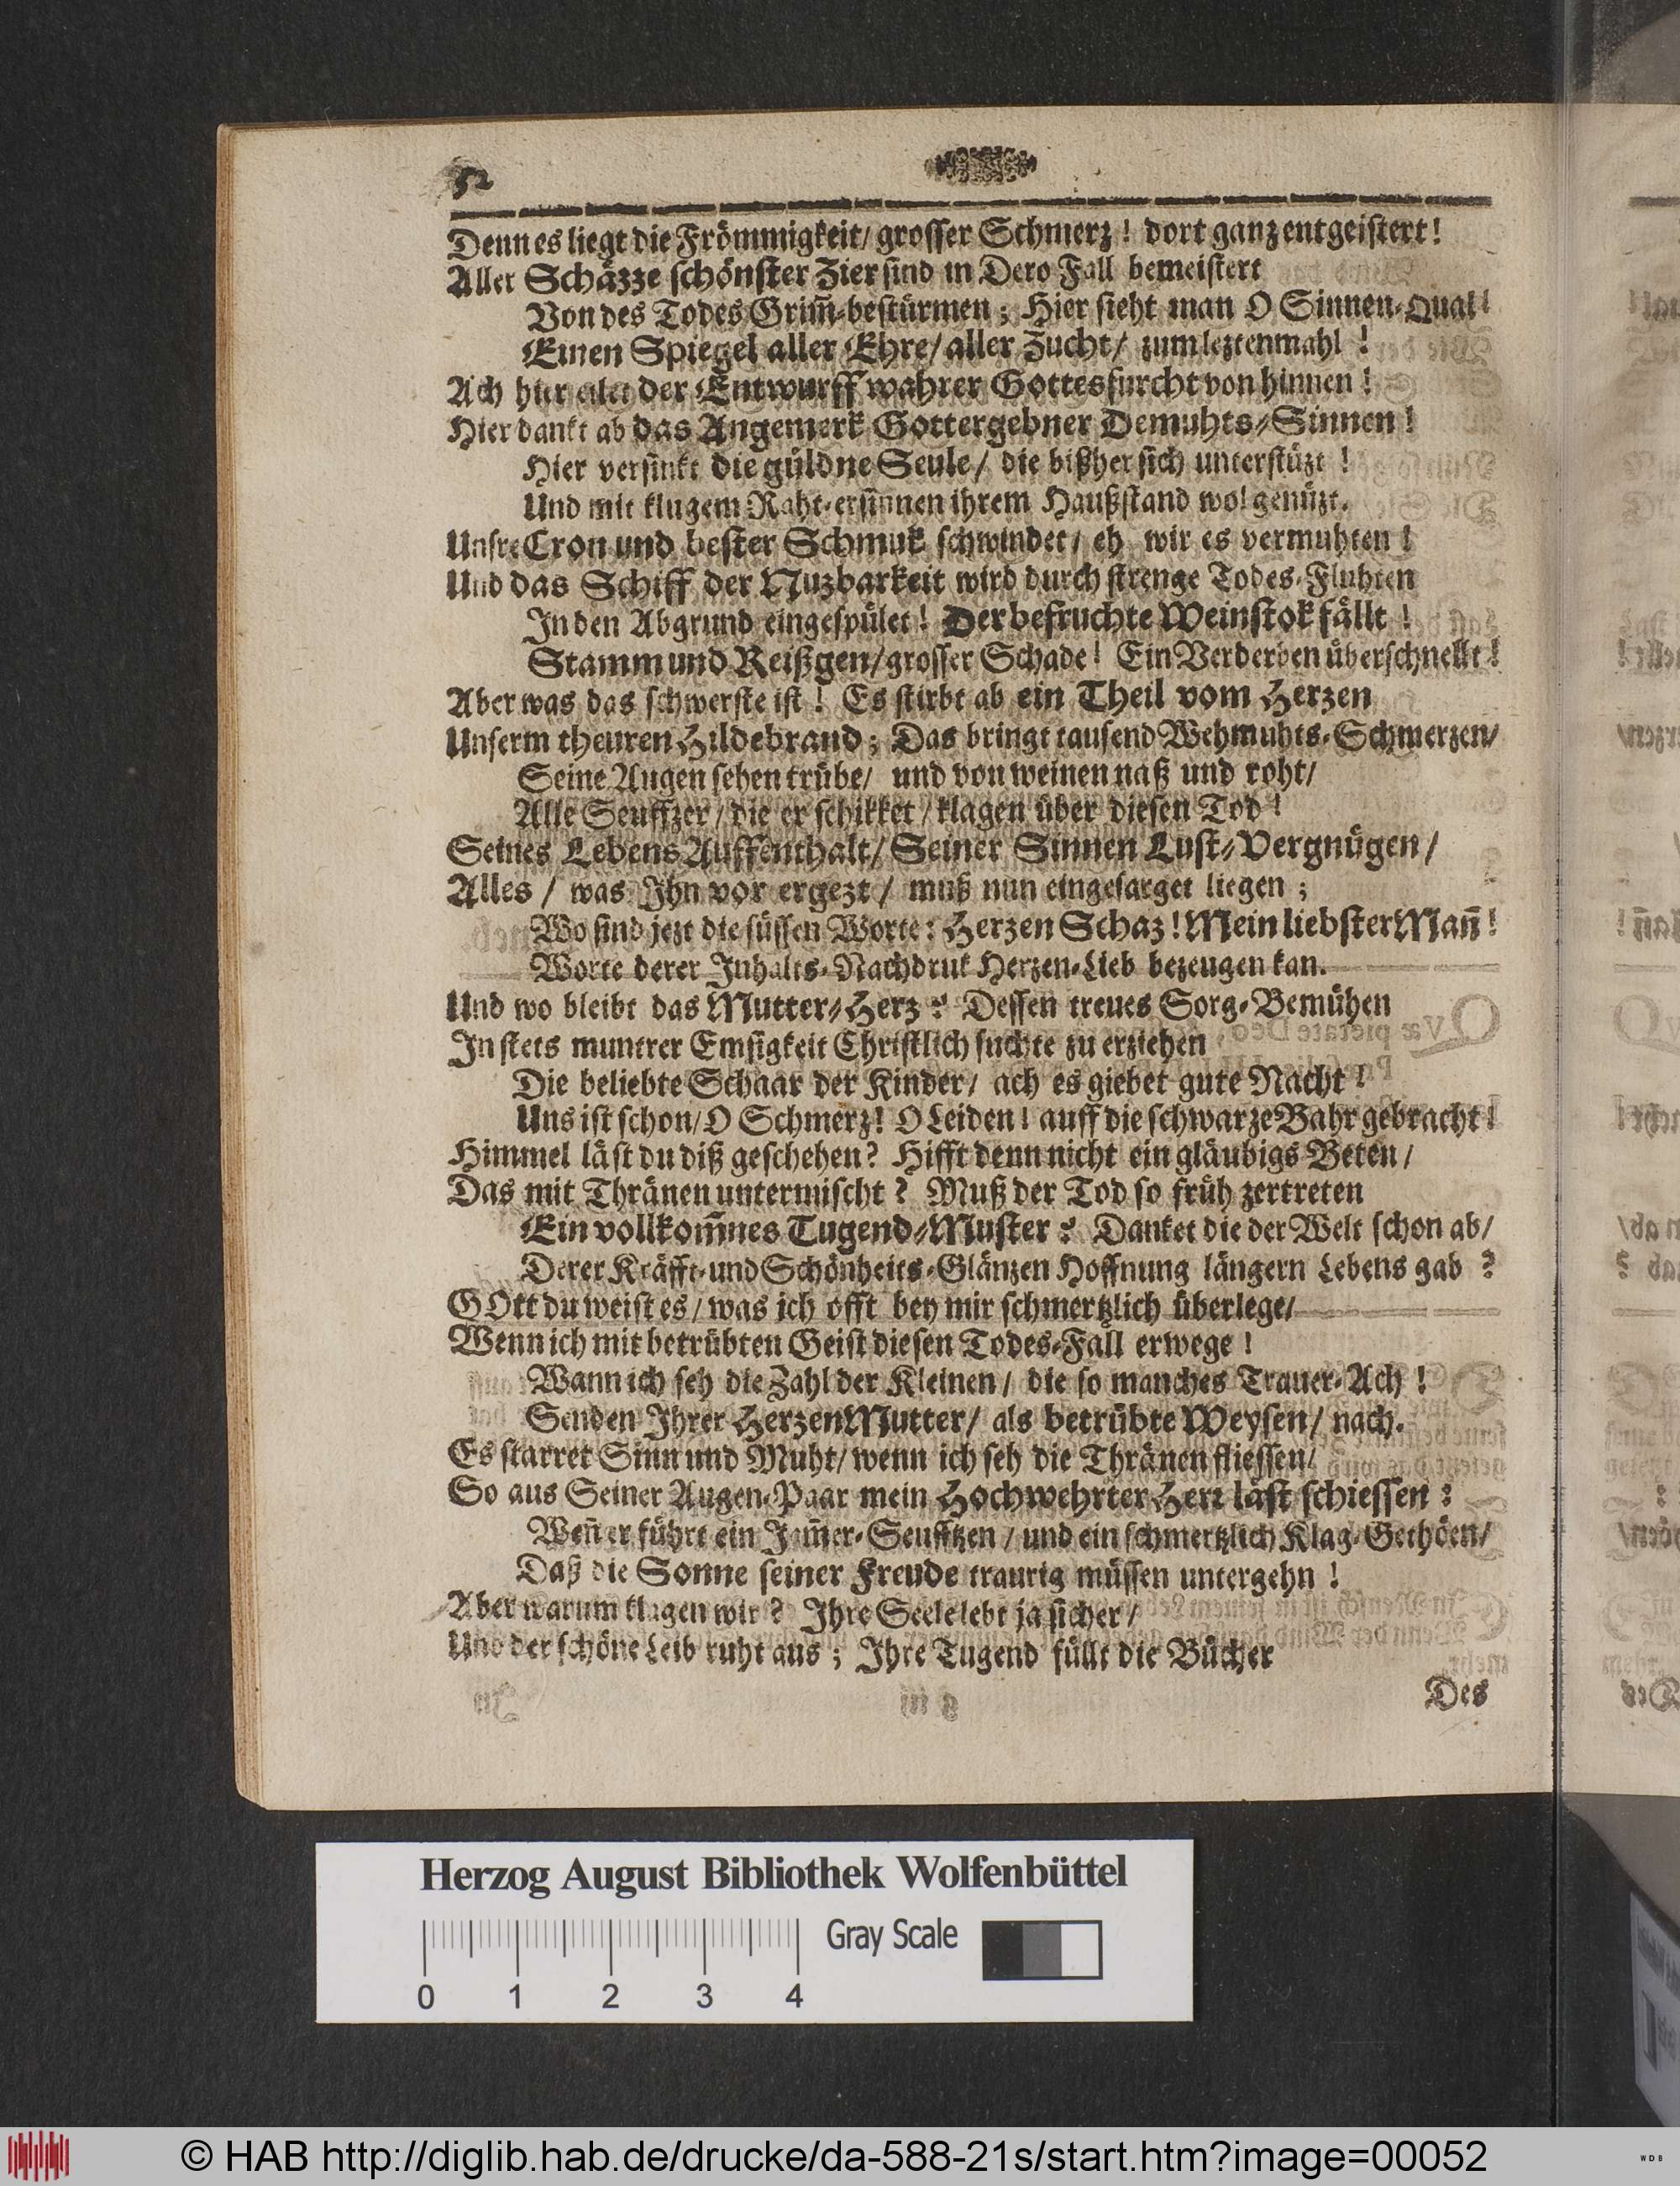 52
Denn es liegt die Frömmigkeit/ grosser Schmerz! dort ganz entgeistert!
Aller Schäzze schönster Zier sind in Dero Fall bemeistert
Von des Todes Grim̄-bestürmen; Hier sieht man O Sinnen-Qual!
Einen Spiegel aller Ehre/ aller Zucht/ zum leztenmahl!
Ach hier eilet der Entwurff wahrer Gottesfurcht von hinnen!
Hier dankt ab das Angemerk Gottergebner Demuhts-Sinnen!
Hier versinkt die güldne Seule/ die bißher sich unterstüzt!
Und mit klugem Raht-ersinnen ihrem Haußstand wol genüzt.
Unsre Cron und bester Schmuk schwindet/ eh wir es vermuhten!
Und das Schiff der Nuzbarkeit wird durch strenge Todes-Fluhten
In den Abgrund eingespület! Der befruchte Weinstok fällt!
Stamm und Reißgen/ grosser Schade! Ein Verderben überschnellt!
Aber was das schwerste ist! Es stirbt ab ein Theil vom Herzen
Unserm theuren Hildebrand; Das bringt tausend Wehmuhts-Schmerzen/
Seine Augen sehen trübe/ und von weinen naß und roht/
Alle Seuffzer/ die er schikket/ klagen über diesen Tod!
Seines Lebens Auffenthalt/ Seiner Sinnen Lust-Vergnügen/
Alles/ was Ihn vor ergezt/ muß nun eingesarget liegen;
Wo sind jezt die süssen Worte: Herzen Schaz! Mein liebster Man̄!
Worte derer Inhalts-Nachdruk Herzen-Lieb bezeugen kan.
Und wo bleibt das Mutter-Herz? Dessen treues Sorg-Bemühen
In stets muntrer Emsigkeit Christlich suchte zu erziehen
Die beliebte Schaar der Kinder/ ach es giebet gute Nacht!
Uns ist schon/ O Schmerz! O Leiden! auff die schwarze Bahr gebracht!
Himmel läst du diß geschehen? Hifft denn nicht ein gläubigs Beten/
Das mit Thränen untermischt? Muß der Tod so früh zertreten
Ein vollkom̄nes Tugend-Muster? Danket die der Welt schon ab/
Derer Kräfft-und Schönheits-Glänzen Hoffnung längern Lebens gab?
GOtt du weist es/ was ich offt bey mir schmertzlich überlege/
Wenn ich mit betrübten Geist diesen Todes-Fall erwege!
Wann ich seh die Zahl der Kleinen/ die so manches Trauer-Ach!
Senden Ihrer Herzen Mutter/ als betrübte Weysen/ nach.
Es starret Sinn und Muht/ wenn ich seh die Thränen fliessen/
So aus Seiner Augen-Paar mein Hochwehrter Herr läst schiessen:
Wen̄ er führt ein Jam̄er-Seufftzen/ und ein schmertzlich Klag-Gethöen/
Daß die Sonne seiner Freude traurig müssen untergehn!
Aber warum klagen wir? Ihre Seele lebt ja sicher/
Und der schöne Leib ruht aus; Ihre Tugend füllt die Bücher
Des
Herzog August Bibliothek Wolfenbüttel
Gray Scale
0 1 2 3 4
© HAB http://diglib.hab.de/drucke/da-588-21s/start.htm?image=00052
WDB